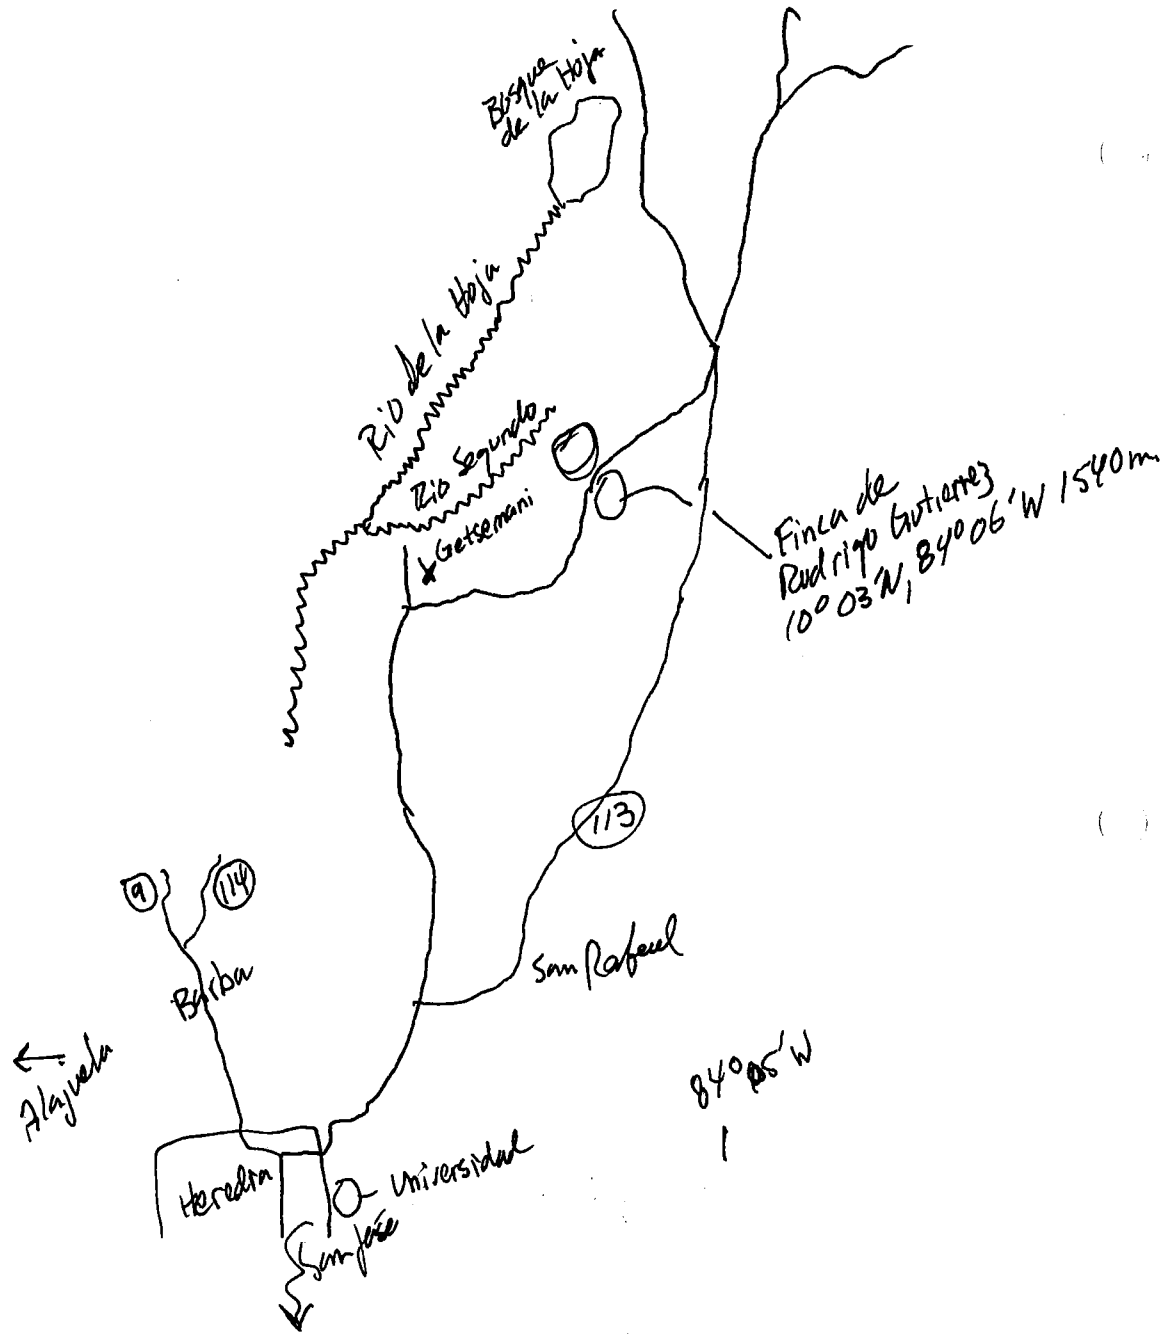 Bosque
de la Hoja
Rio de la Hoja
Rio Segundo
Getsemani
Finca de
Rodrigo Gutierrez
10° 03'N, 84° 06'W 1540m.
113
9
114
San Rafael
Barba
Alajuela
84° 05'W
Heredia
Universidad
San José